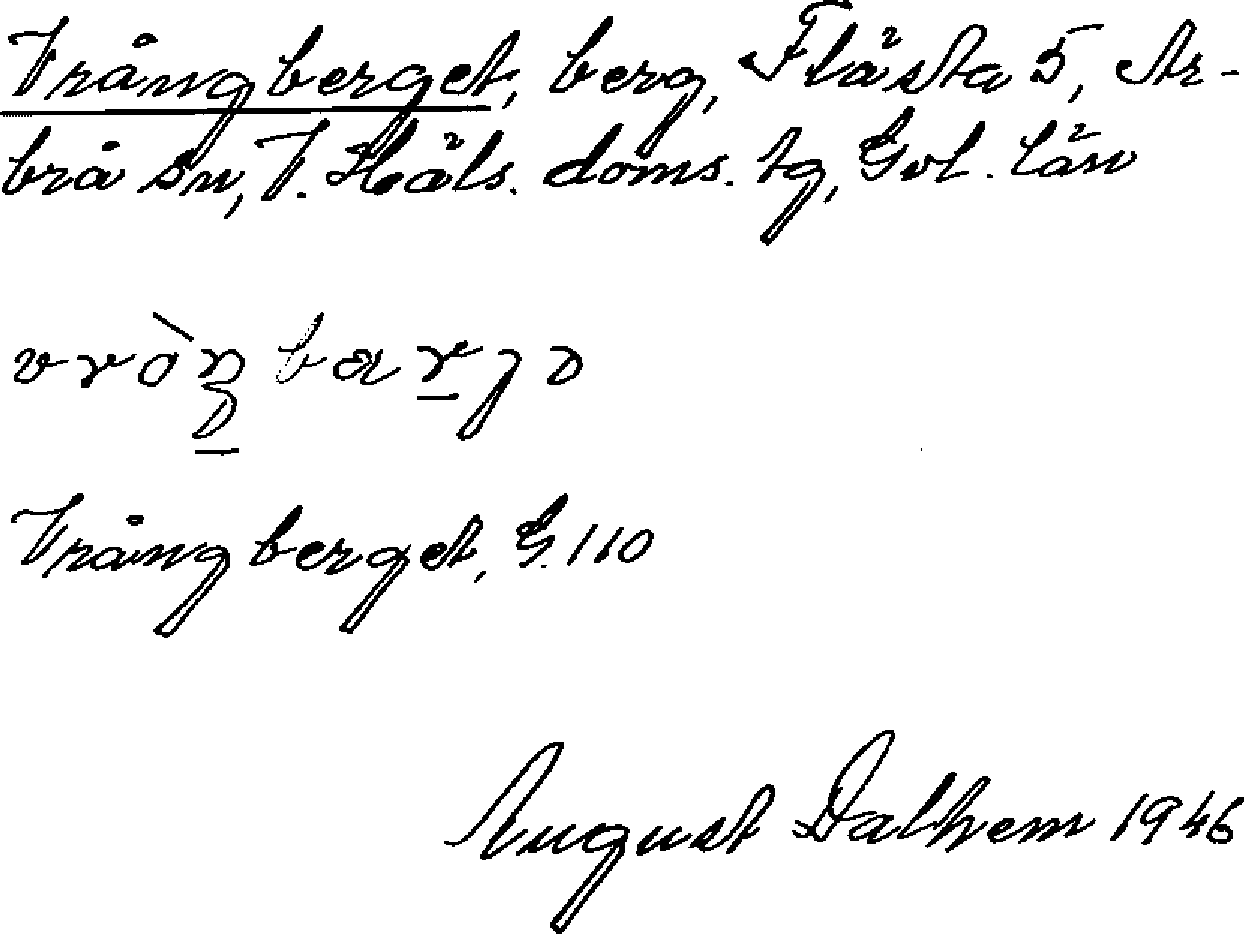 Vrångberget, berg, Flästa 5, Ar-
brå sn, V. Häls. doms. tg, Gvl. län
vròŋbærjə
Vrångberget, G. 110
August Dalhem 1946